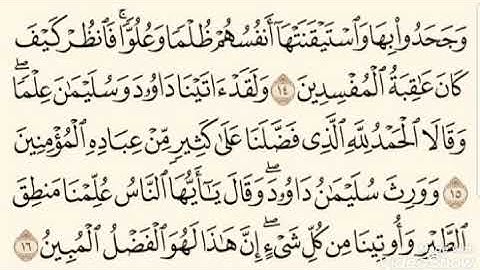 وَجَحَدُوا۟ بِهَا وَٱسْتَيْقَنَتْهَآ أَنفُسُهُمْ ظُلْمًا وَعُلُوًّا ۚ فَٱنظُرْ كَيْفَ
كَانَ عَٰقِبَةُ ٱلْمُفْسِدِينَ ١٤ وَلَقَدْ ءَاتَيْنَا دَاوُۥدَ وَسُلَيْمَٰنَ عِلْمًا ۖ
وَقَالَا ٱلْحَمْدُ لِلَّهِ ٱلَّذِى فَضَّلَنَا عَلَىٰ كَثِيرٍ مِّنْ عِبَادِهِ ٱلْمُؤْمِنِينَ
١٥ وَوَرِثَ سُلَيْمَٰنُ دَاوُۥدَ ۖ وَقَالَ يَٰٓأَيُّهَا ٱلنَّاسُ عُلِّمْنَا مَنطِقَ
ٱلطَّيْرِ وَأُوتِينَا مِن كُلِّ شَىْءٍ ۖ إِنَّ هَٰذَا لَهُوَ ٱلْفَضْلُ ٱلْمُبِينُ ١٦